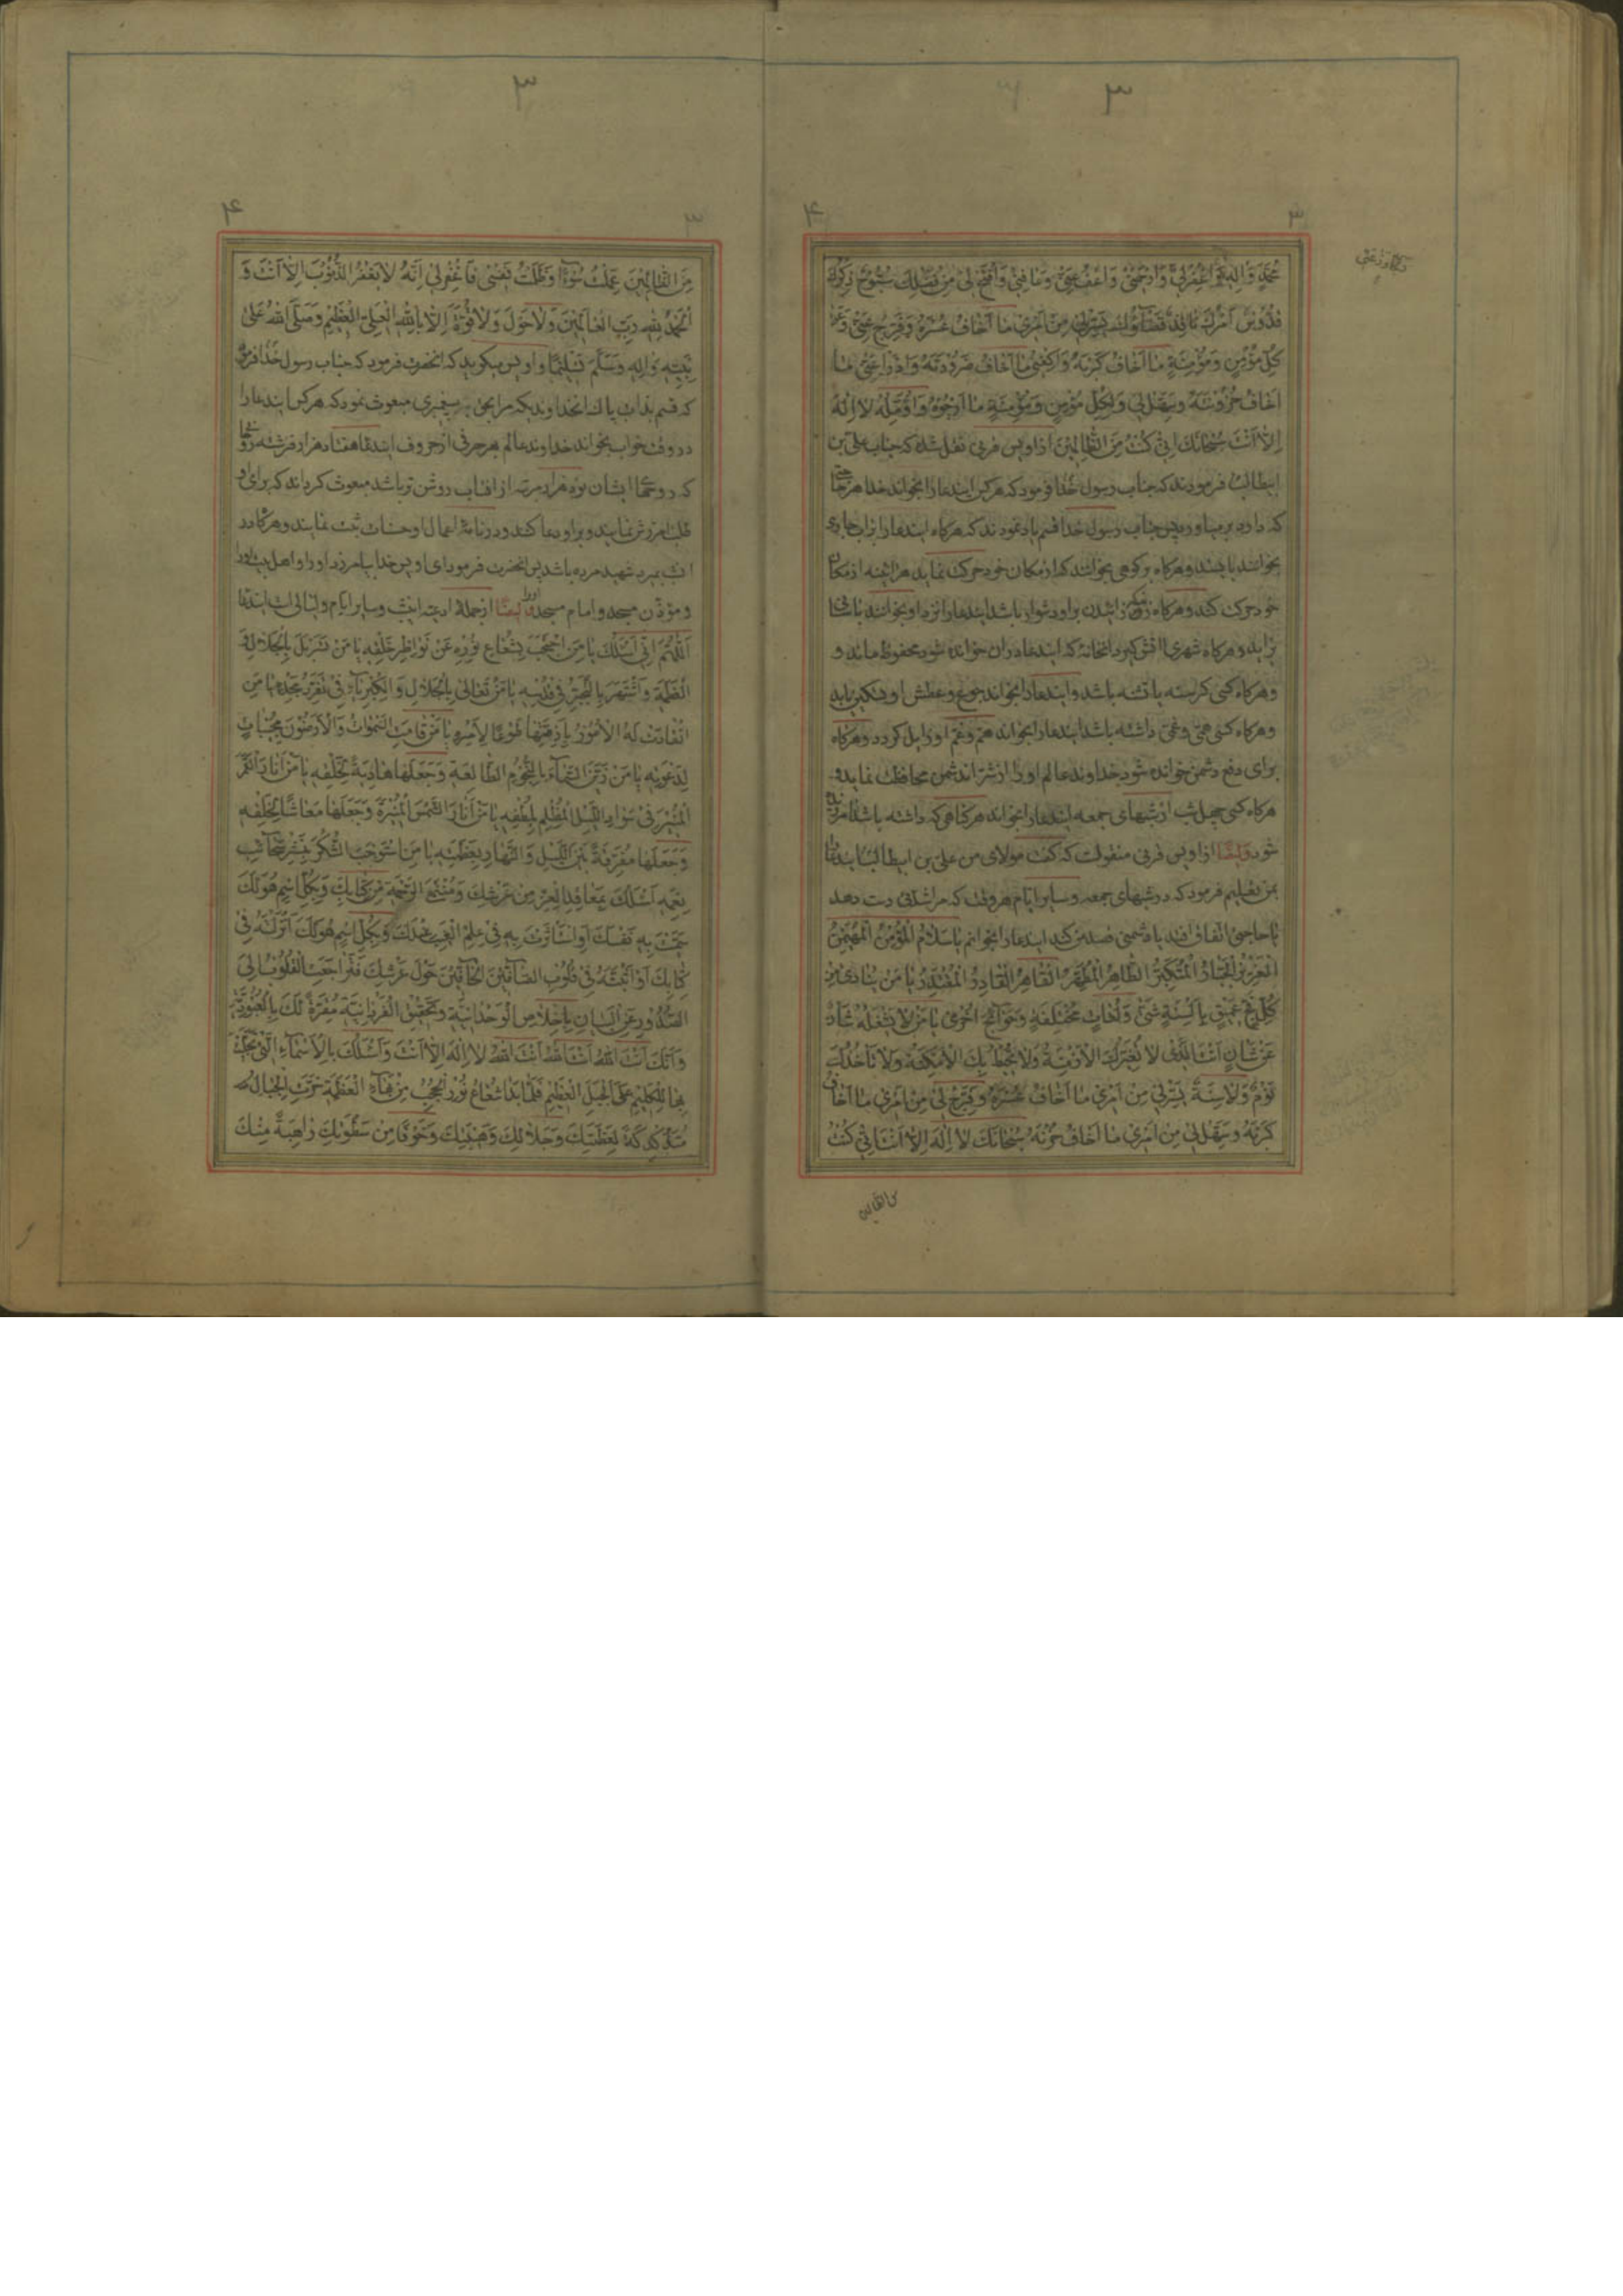 ۳
۳
۴
مُحَمَّدٍ وَآلِهِ وَاغْفِرْلِي وَارْحَمْنِي وَاعْفُ عَنِّي وَعَافِنِي وَافْتَحْ لِي مِنْ فَضْلِكَ سُبُّوحٌ ذِكْرُكَ
قُدُّوسٌ أَمْرُكَ نَافِذٌ قَضَاؤُكَ يَسِّرْلِي مِنْ أَمْرِي مَا أَخَافُ عُسْرَهُ وَفَرِّجْ عَنِّي وَعَنْ
كُلِّ مُؤْمِنٍ وَمُؤْمِنَةٍ مَا أَخَافُ كَرْبَهُ وَاكْفِنِي مَا أَخَافُ ضَرُورَتَهُ وَادْرَأْ عَنِّي مَا
أَخَافُ حُزُونَتَهُ وَسَهِّلْ لِي وَلِكُلِّ مُؤْمِنٍ وَمُؤْمِنَةٍ مَا أَرْجُوهُ وَآمُلُهُ لَا إِلٰهَ
إِلَّا أَنْتَ سُبْحَانَكَ إِنِّي كُنْتُ مِنَ الظَّالِمِينَ از اویس قرنی نقل شده که جناب علی بن
ابیطالب فرمودند که جناب رسول خدا فرمود که هر کس ایندعا را بخواند خدا هر حاجتی
که دارد برمیاورد پس جناب رسول خدا قسم یاد نمودند که هرگاه ایندعا را بر اب جاری
بخوانند بایستد و هرگاه بر کوهی بخوانند که از مکان خود حرکت نماید هر اینه از مکان
خود حرکت کند و هرگاه زنی زائیدن بر او دشوار باشد ایندعا را نزد او بخوانند باسانی
بزاید و هرگاه شهری را اتش گیرد انخانه که ایندعا در ان خوانده شود محفوظ ماند و
وهرگاه کسی گرسنه یا تشنه باشد و ایندعا را بخواند جوع و عطش او تسکین یابد
و هرگاه کسی همّی و غمّی داشته باشد ایندعا را بخواند هم و غم او زایل گردد و هرگاه
برای دفع دشمن خوانده شود خداوند عالم او را از شر اندشمن محافظت نماید و
هرگاه کسی چهل شب از شبهای جمعه ایندعا را بخواند هر گناهی که داشته باشد امرزیده
شود وایضا از اویس قرنی منقولست که گفت مولای من علی بن ابیطالب ایندعا
بمن تعلیم فرمود که در شبهای جمعه و سایر ایام هر وقت که مرا شدتی دست دهد
یا حاجتی اتفاق افتد یا دشمنی قصد من کند ایندعا را بخوانم یا سَلَامُ الْمُؤْمِنُ الْمُهَيْمِنُ
الْعَزِيزُ الْجَبَّارُ الْمُتَكَبِّرُ الطَّاهِرُ الْمُطَهَّرُ الْقَاهِرُ الْقَادِرُ الْمُقْتَدِرُ يَا مَنْ يُنَادَى مِنْ
كُلِّ فَجٍّ عَمِيقٍ بِأَلْسِنَةٍ شَتَّى وَلُغَاتٍ مُخْتَلِفَةٍ وَحَوَائِجَ أُخْرَى يَا مَنْ لَا يَشْغَلُهُ شَأْنٌ
عَنْ شَأْنٍ أَنْتَ الَّذِي لَا تُغَيِّرُكَ الْأَزْمِنَةُ وَلَا تُحِيطُ بِكَ الْأَمْكِنَةُ وَلَا تَأْخُذُكَ
نَوْمٌ وَلَا سِنَةٌ يَسِّرْلِي مِنْ أَمْرِي مَا أَخَافُ عُسْرَهُ وَفَرِّجْ لِي مِنْ أَمْرِي مَا أَخَافُ
كَرْبَهُ وَسَهِّلْ لِي مِنْ أَمْرِي مَا أَخَافُ حُزْنَهُ سُبْحَانَكَ لَا إِلٰهَ إِلَّا أَنْتَ إِنِّي كُنْتُ
من الظالمین
۳
۳
۴
مِنَ الظَّالِمِينَ عَمِلْتُ سُوءًا وَظَلَمْتُ نَفْسِي فَاغْفِرْلِي إِنَّهُ لَا يَغْفِرُ الذُّنُوبَ إِلَّا أَنْتَ وَ
الْحَمْدُ لِلّٰهِ رَبِّ الْعَالَمِينَ وَلَا حَوْلَ وَلَا قُوَّةَ إِلَّا بِاللّٰهِ الْعَلِيِّ الْعَظِيمِ وَصَلَّى اللّٰهُ عَلَى
نَبِيِّهِ وَآلِهِ وَسَلَّمَ تَسْلِيمًا و اویس میگوید که انحضرت فرمود که جناب رسول خدا فرمود
که قسم بذات پاک انخداوندیکه مرا بحق به پیغمبری مبعوث نمود که هر کس ایندعا را
در وقت خواب بخواند خداوند عالم بهر حرفی از حروف ایندعا هفتاد هزار فرشته
که روهای ایشان نود هزار مرتبه از افتاب روشن تر باشد مبعوث گرداند که برای او
طلب امرزش نمایند و بر او دعا کنند و در نامهٔ اعمال او حسنات ثبت نمایند و هرگاه در
انشب بمیرد شهید مرده باشد پس انحضرت فرمود ای اویس خدا بیامرزد او را و اهل بیت او را
و مؤذن مسجد و امام مسجد او را وایضا از جملهٔ ادعیه اینشب و سایر ایام و لیالی است ایندعا
اَللّٰهُمَّ إِنِّي أَسْئَلُكَ يَا مَنِ احْتَجَبَ بِشُعَاعِ نُورِهِ عَنْ نَوَاظِرِ خَلْقِهِ يَا مَنْ تَسَرْبَلَ بِالْجَلَالِ وَ
الْعَظَمَةِ وَاشْتَهَرَ بِالتَّجَبُّرِ فِي قُدْسِهِ يَا مَنْ تَعَالَى بِالْجَلَالِ وَالْكِبْرِيَاءِ فِي تَفَرُّدِ مَجْدِهِ يَا مَنِ
انْقَادَتْ لَهُ الْأُمُورُ بِأَزِمَّتِهَا طَوْعًا لِأَمْرِهِ يَا مَنْ قَامَتِ السَّمٰوَاتُ وَالْأَرَضُونَ مُجِيبَاتٍ
لِدَعْوَتِهِ يَا مَنْ زَيَّنَ السَّمَاءَ بِالنُّجُومِ الطَّالِعَةِ وَجَعَلَهَا هَادِيَةً لِخَلْقِهِ يَا مَنْ أَنَارَ الْقَمَرَ
الْمُنِيرَ فِي سَوَادِ اللَّيْلِ الْمُظْلِمِ بِلُطْفِهِ يَا مَنْ أَنَارَ الشَّمْسَ الْمُنِيرَةَ وَجَعَلَهَا مَعَاشًا لِخَلْقِهِ
وَجَعَلَهَا مُفَرِّقَةً بَيْنَ اللَّيْلِ وَالنَّهَارِ بِعَظَمَتِهِ يَا مَنِ اسْتَوْجَبَ الشُّكْرَ بِنَشْرِ سَحَائِبِ
نِعَمِهِ أَسْئَلُكَ بِمَعَاقِدِ الْعِزِّ مِنْ عَرْشِكَ وَمُنْتَهَى الرَّحْمَةِ مِنْ كِتَابِكَ وَبِكُلِّ اسْمٍ هُوَ لَكَ
سَمَّيْتَ بِهِ نَفْسَكَ أَوِ اسْتَأْثَرْتَ بِهِ فِي عِلْمِ الْغَيْبِ عِنْدَكَ وَبِكُلِّ اسْمٍ هُوَ لَكَ أَنْزَلْتَهُ فِي
كِتَابِكَ أَوْ أَثْبَتَّهُ فِي قُلُوبِ الصَّافِّينَ الْحَافِّينَ حَوْلَ عَرْشِكَ فَتَرَاجَعَتِ الْقُلُوبُ إِلَى
الصُّدُورِ عَنِ الْبَيَانِ بِإِخْلَاصِ الْوَحْدَانِيَّةِ وَتَحْقِيقِ الْفَرْدَانِيَّةِ مُقِرَّةً لَكَ بِالْعُبُودِيَّةِ
وَأَنَّكَ أَنْتَ اللّٰهُ أَنْتَ اللّٰهُ أَنْتَ اللّٰهُ لَا إِلٰهَ إِلَّا أَنْتَ وَأَسْئَلُكَ بِالْأَسْمَاءِ الَّتِي تَجَلَّيْتَ
بِهَا لِلْكَلِيمِ عَلَى الْجَبَلِ الْعَظِيمِ فَلَمَّا بَدَا شُعَاعُ نُورِ الْحُجُبِ مِنْ بَهَاءِ الْعَظَمَةِ خَرَّتِ الْجِبَالُ
مُتَدَكْدِكَةً لِعَظَمَتِكَ وَجَلَالِكَ وَهَيْبَتِكَ وَخَوْفًا مِنْ سَطْوَتِكَ رَاهِبَةً مِنْكَ